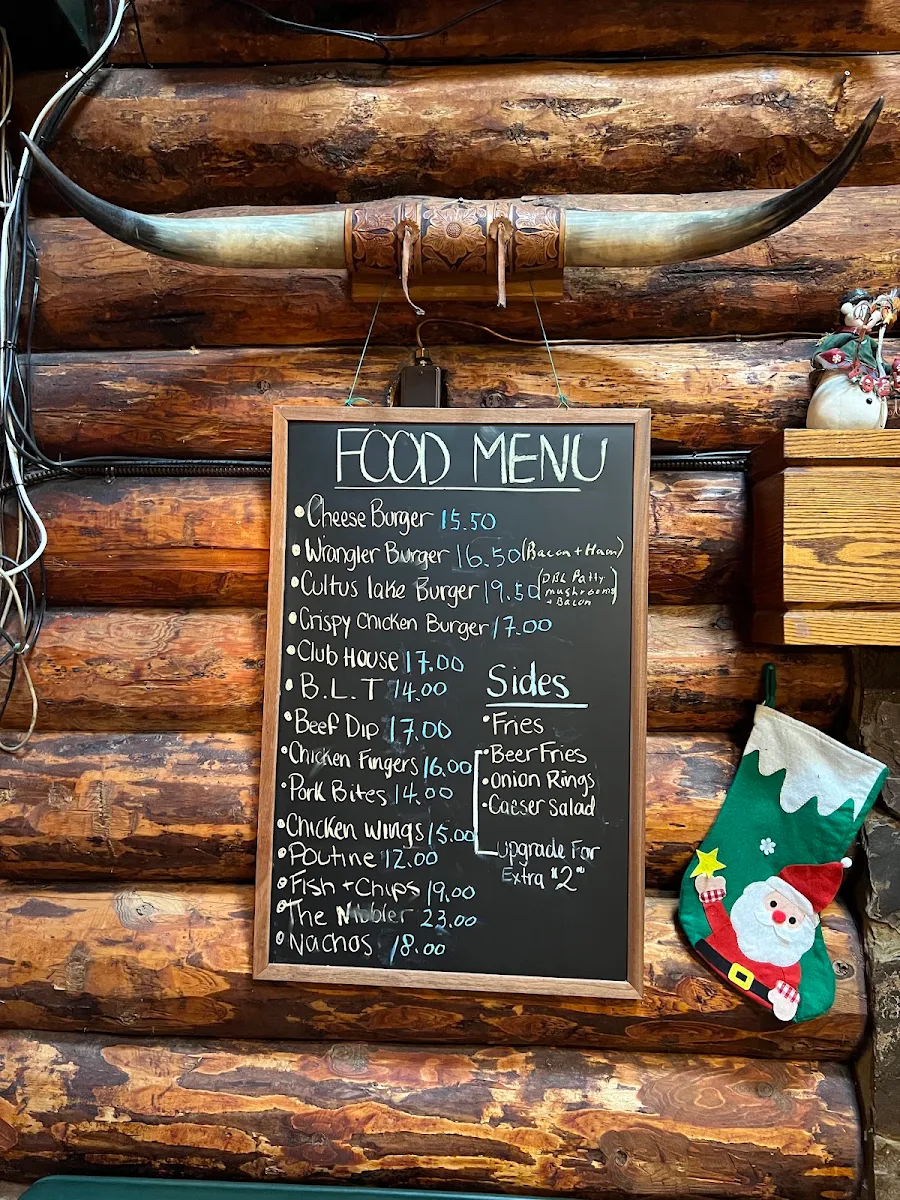 FOOD MENU
• Cheese Burger 15.50
• Wrangler Burger 16.50 (Bacon + Ham)
• Cultus lake Burger 19.50 (DBL Patty mushrooms + Bacon)
• Crispy Chicken Burger 17.00
• Club House 17.00
• B.L.T 14.00
• Beef Dip 17.00
• Chicken Fingers 16.00
• Pork Bites 14.00
• Chicken Wings 15.00
• Poutine 12.00
• Fish + Chips 19.00
• The Nibbler 23.00
• Nachos 18.00
Sides
• Fries
• Beer Fries
• Onion Rings
• Caeser Salad
upgrade For
Extra $2.00